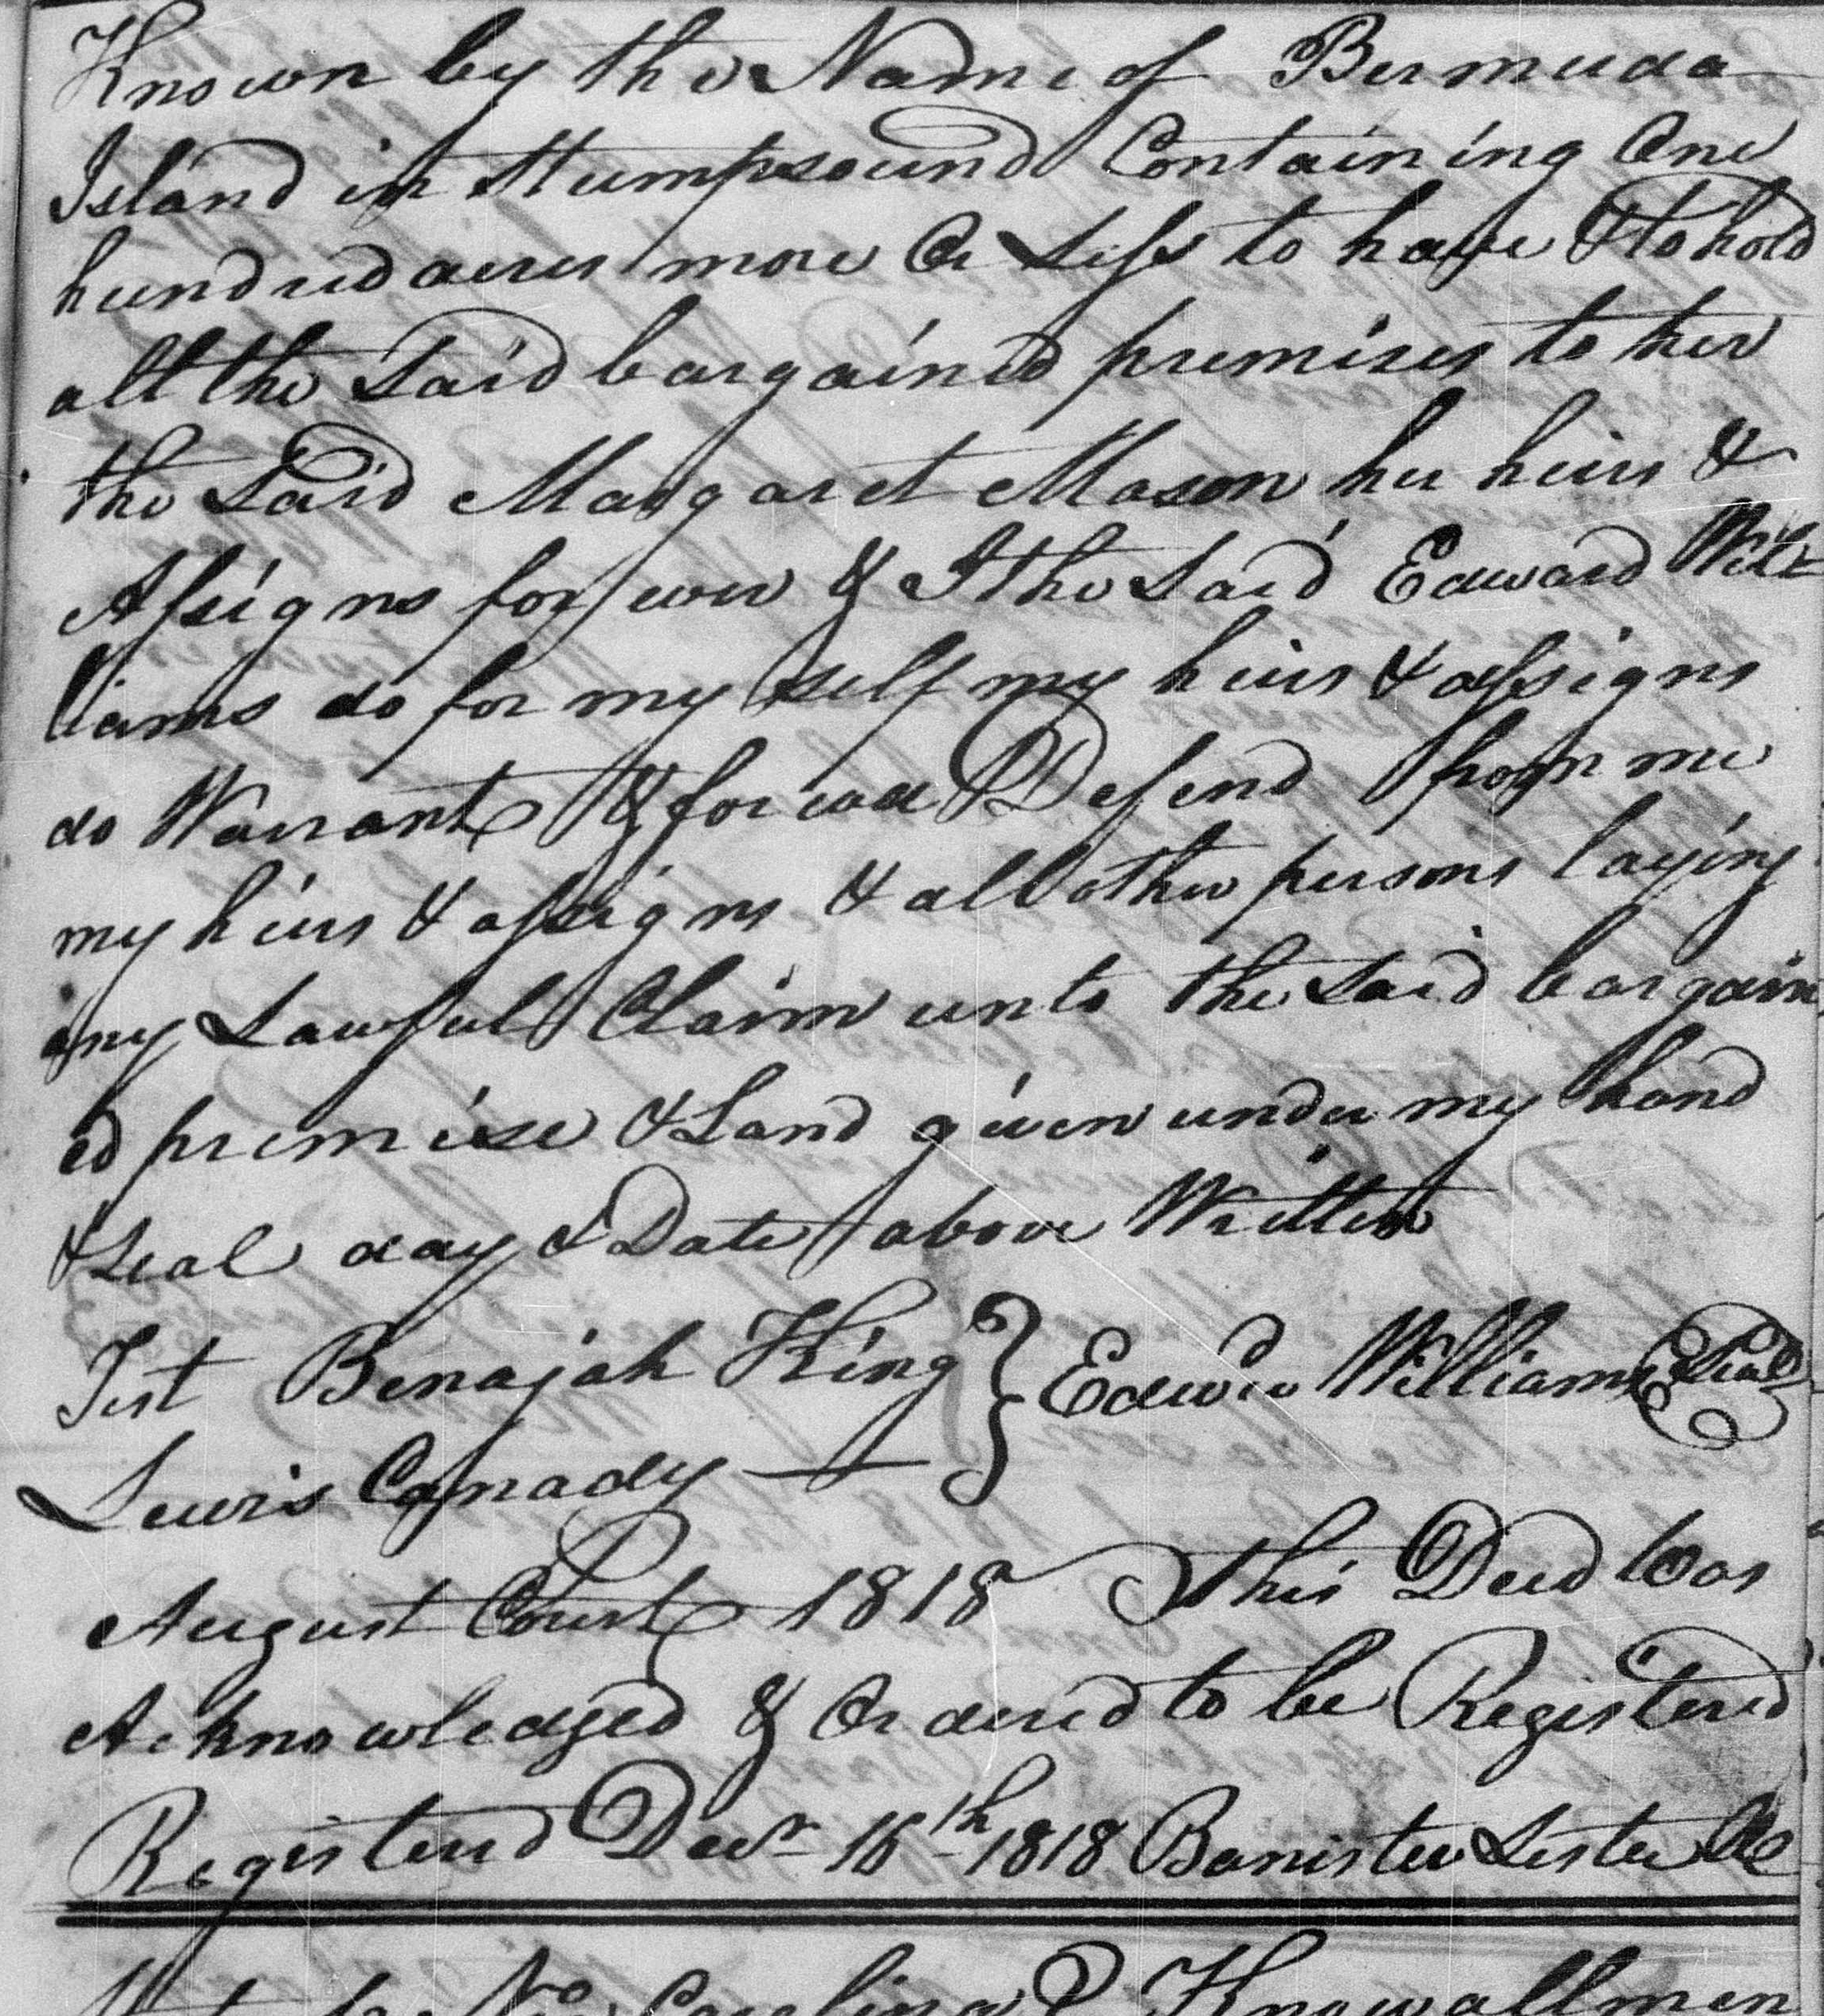 Known by the Name of Bermuda
Island in Stumpsound Containing One
hundred acres more Or Less to have & to hold
all the Said bargained premises to her
the Said Margaret Mason her heirs &
Assigns for ever & I the Said Edward Wil
liams do for my self my heirs & assigns
do Warrant & for ever Defend from me
my heirs & assigns & all other persons laying
any Lawful Claim unto the Said bargain
ed premise & Land given under my hand
& Seal day & Date above Written
Test Benajah King } Edwd Williams Seal
Lewis Canady
August Court 1818 This Deed Was
Acknowledged & Ordered to be Registered
Registered Decr 16th 1818 Banister Lester
No Carolina Know all men